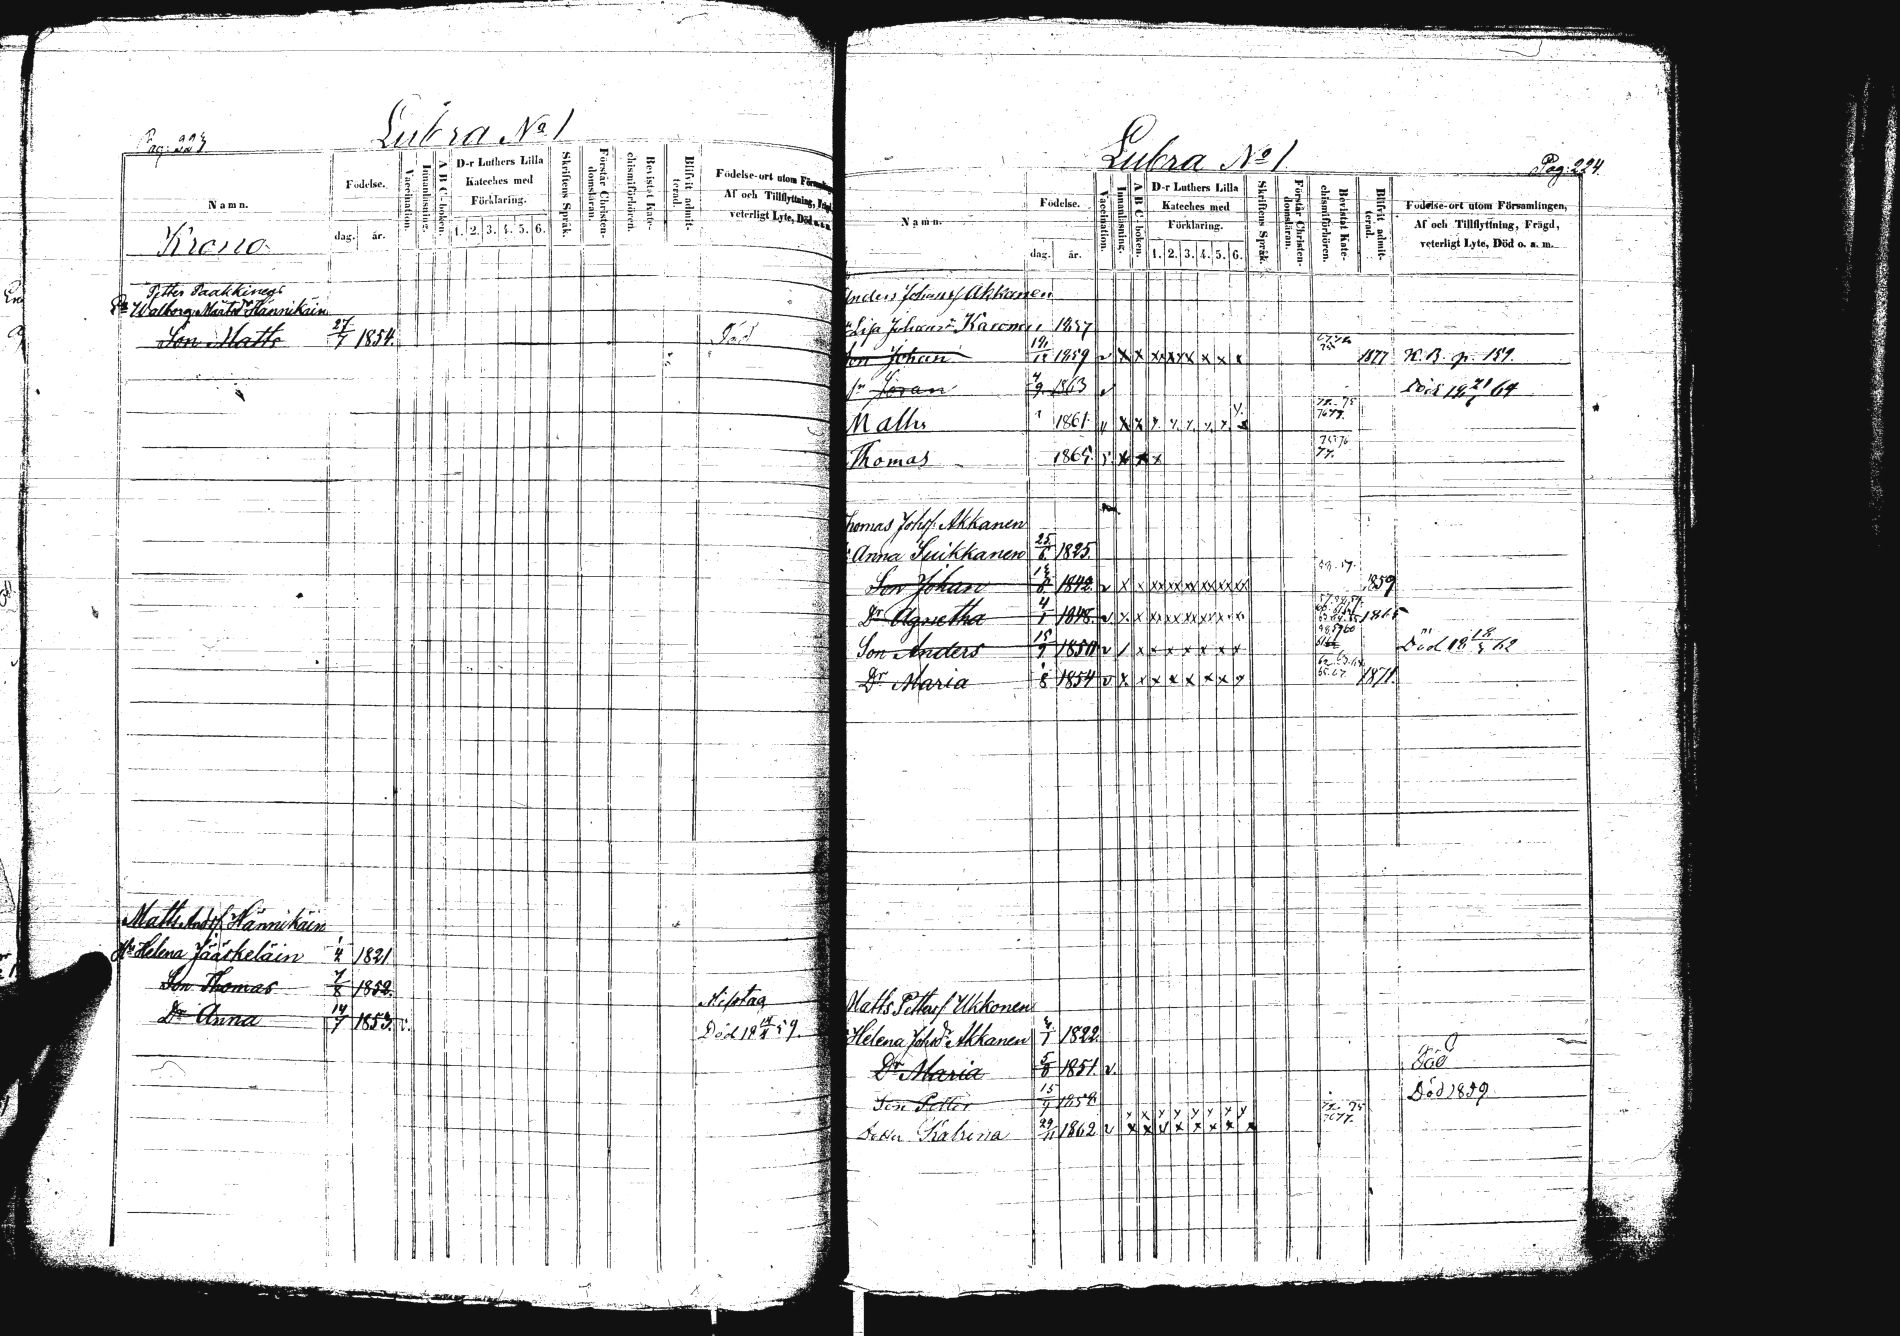 Pag: 223
Lubra No 1
Namn.
Födelse.
dag. år.
Vaccination.
Innanläsning.
A B C-boken.
D-r Luthers Lilla
Kateches med
Förklaring.
1. 2. 3. 4. 5. 6.
Skriftens Språk.
Förstår Christen-
domsläran.
Bevistat Kate-
chismiförhören.
Blifvit admit-
terad.
Födelse-ort utom Församling
Af och Tillflyttning, Frägd,
veterligt Lyte, Död o. a. m.
Krono
Petter Paakkinens
Walborg Matsdr Hännikäin
Son Matts 27/7 1854. Död
Matts Andsf Hännikäin
Hu Helena Jääskeläin 1/4 1821
Son Thomas 7/8 1852.
Dr Anna 14/7 1853. v. Död 18 59.
Lubra No 1
Pag: 224
Namn.
Födelse.
dag. år.
Vaccination.
Innanläsning.
A B C-boken.
D-r Luthers Lilla
Kateches med
Förklaring.
1. 2. 3. 4. 5. 6.
Skriftens Språk.
Förstår Christen-
domsläran.
Bevistat Kate-
chismiförhören.
Blifvit admit-
terad.
Födelse-ort utom Församlingen,
Af och Tillflyttning, Frägd,
veterligt Lyte, Död o. a. m.
Anders Johansf Akkanen
Lisa Johansdr Karonen 1837
Son Johan 1859 v x x x x x x x x x 1877 K. B. p. 159.
Joran 4/9 1863 v Död 18 64
Matts 1861
Thomas 1865 x x x
Thomas Johsf Akkanen
Anna Suikkanen 25/6 1825.
Son Johan 1842 v x x 1859
Dr Agnetha 4/1 1848. 1865
Son Anders 15/9 1850 v / x x x x x x x Död 18 62
Dr Maria 1/8 1854 v x x x x x x x 1871.
Matts Pettersf Ukkonen
Helena Johsdr Akkanen 1822.
Dr Maria 5/8 1851. v. Död
Son Petter 15/9 1858 Död 1859
Dotter Katrina 29/11 1862 v x x x x x x x x